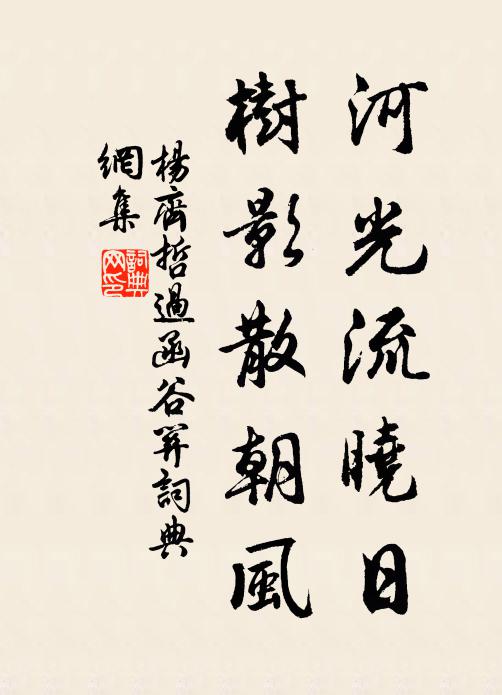 河光流曉日
樹影散朝風
楊齊哲過函谷關詞典
網集
詞典網印